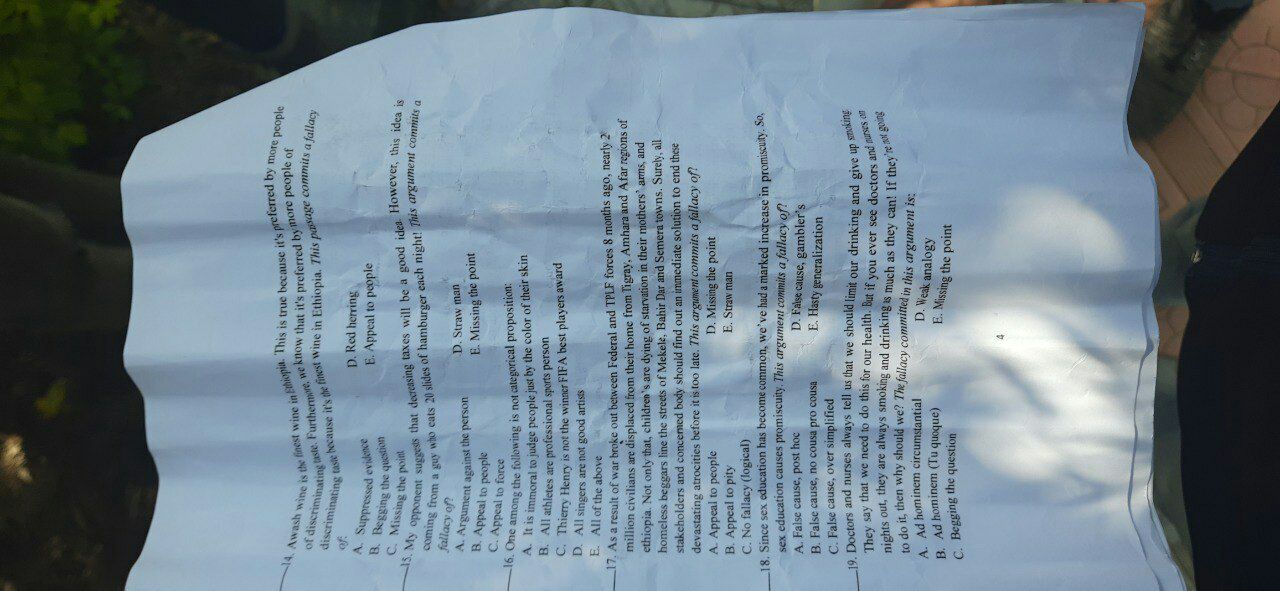 14. Awash wine is the finest wine in Ethiopia. This is true because it's preferred by more people
of discriminating taste. Furthermore, we know that it's preferred by more people of
discriminating taste because it's the finest wine in Ethiopia. This passage commits a fallacy
of:
A. Suppressed evidence D. Red herring
B. Begging the question E. Appeal to people
C. Missing the point
15. My opponent suggests that decreasing taxes will be a good idea. However, this idea is
coming from a guy who eats 20 slides of hamburger each night! This argument commits a
fallacy of?
A. Argument against the person D. Straw man
B. Appeal to people E. Missing the point
C. Appeal to force
16. One among the following is not categorical proposition:
A. It is immoral to judge people just by the color of their skin
B. All athletes are professional sports person
C. Thierry Henry is not the winner FIFA best players award
D. All singers are not good artists
E. All of the above
17. As a result of war broke out between Federal and TPLF forces 8 months ago, nearly 2
million civilians are displaced from their home from Tigray, Amhara and Afar regions of
ethiopia. Not only that, children's are dying of starvation in their mothers' arms, and
homeless beggars line the streets of Mekele, Bahir Dar and Semera towns. Surely, all
stakeholders and concerned body should find out an immediate solution to end these
devastating atrocities before it is too late. This argument commits a fallacy of?
A. Appeal to people D. Missing the point
B. Appeal to pity E. Straw man
C. No fallacy (logical)
18. Since sex education has become common, we've had a marked increase in promiscuity. So,
sex education causes promiscuity. This argument commits a fallacy of?
A. False cause, post hoc D. False cause, gambler's
B. False cause, no cousa pro cousa E. Hasty generalization
C. False cause, over simplified
19. Doctors and nurses always tell us that we should limit our drinking and give up smoking
They say that we need to do this for our health. But if you ever see doctors and nurses on
nights out, they are always smoking and drinking as much as they can! If they're not going
to do it, then why should we? The fallacy committed in this argument is:
A. Ad hominem circumstantial D. Weak analogy
B. Ad hominem (Tu quoque) E. Missing the point
C. Begging the question
4